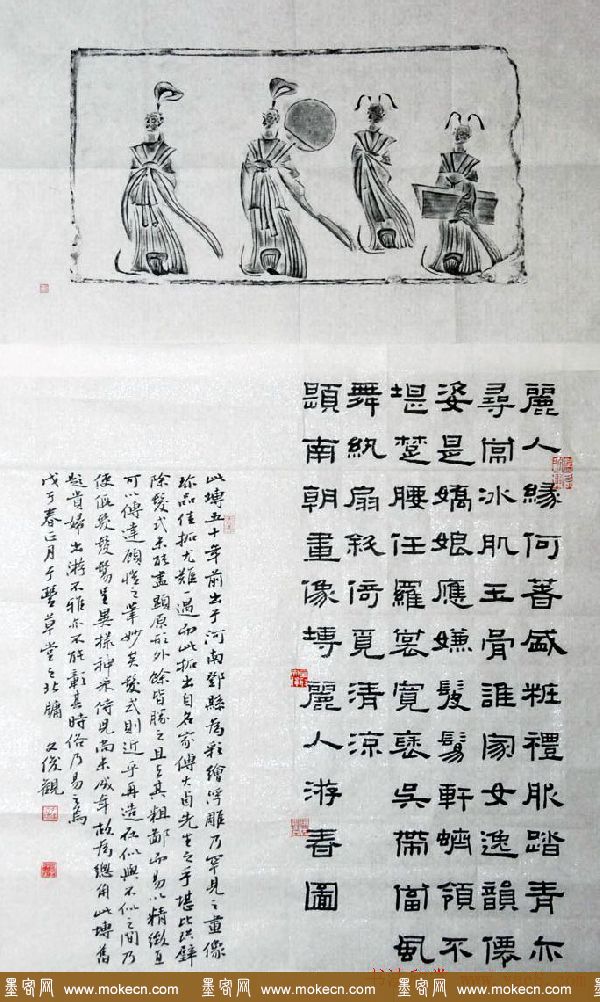 墨客网 www.mokecn.com 墨客网 www.mokecn.com 墨客网 www.mokecn.com
麗人緣何著盛粧禮服踏青亦
尋常冰肌玉骨誰家女逸韻儂
姿是嬌娘應嫌髮髢軒蠐領不
堪楚腰任羅裳寬吳帶當風
舞紈扇斜倚覓清涼
題南朝畫像塼麗人游春圖
此塼五十年前出于河南鄧縣為彩繪浮雕乃罕見之畫像
珍品佳拓尤難一遇而此拓出自名家傅大卣先生之手堪比拱璧
除髮式未能盡顯原形外餘皆勝之且去其粗鄙而易以精緻直
可以傳達顧愷之筆妙矣髮式則近乎再造在似與不似之間乃
使髮髻呈異樣神采侍兒尚未成年故為總角此塼舊
題貴婦出游不雅亦不能彰其時俗乃易之焉
戊子春正月于豐草堂之北牖 文俊觀
墨客网 www.mokecn.com 墨客网 www.mokecn.com 墨客网 www.mokecn.com